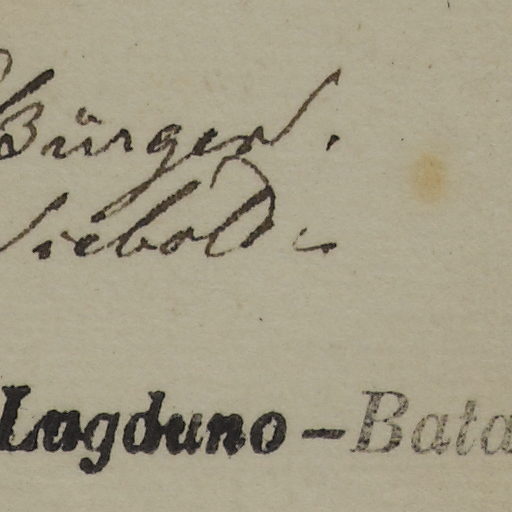 Bürger.
Siebold.
Lugduno-Bata